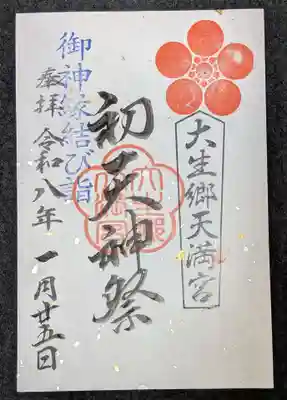 大生郷天満宮
初天神祭
御神縁結び詣
奉拝 令和八年 一月廿五日